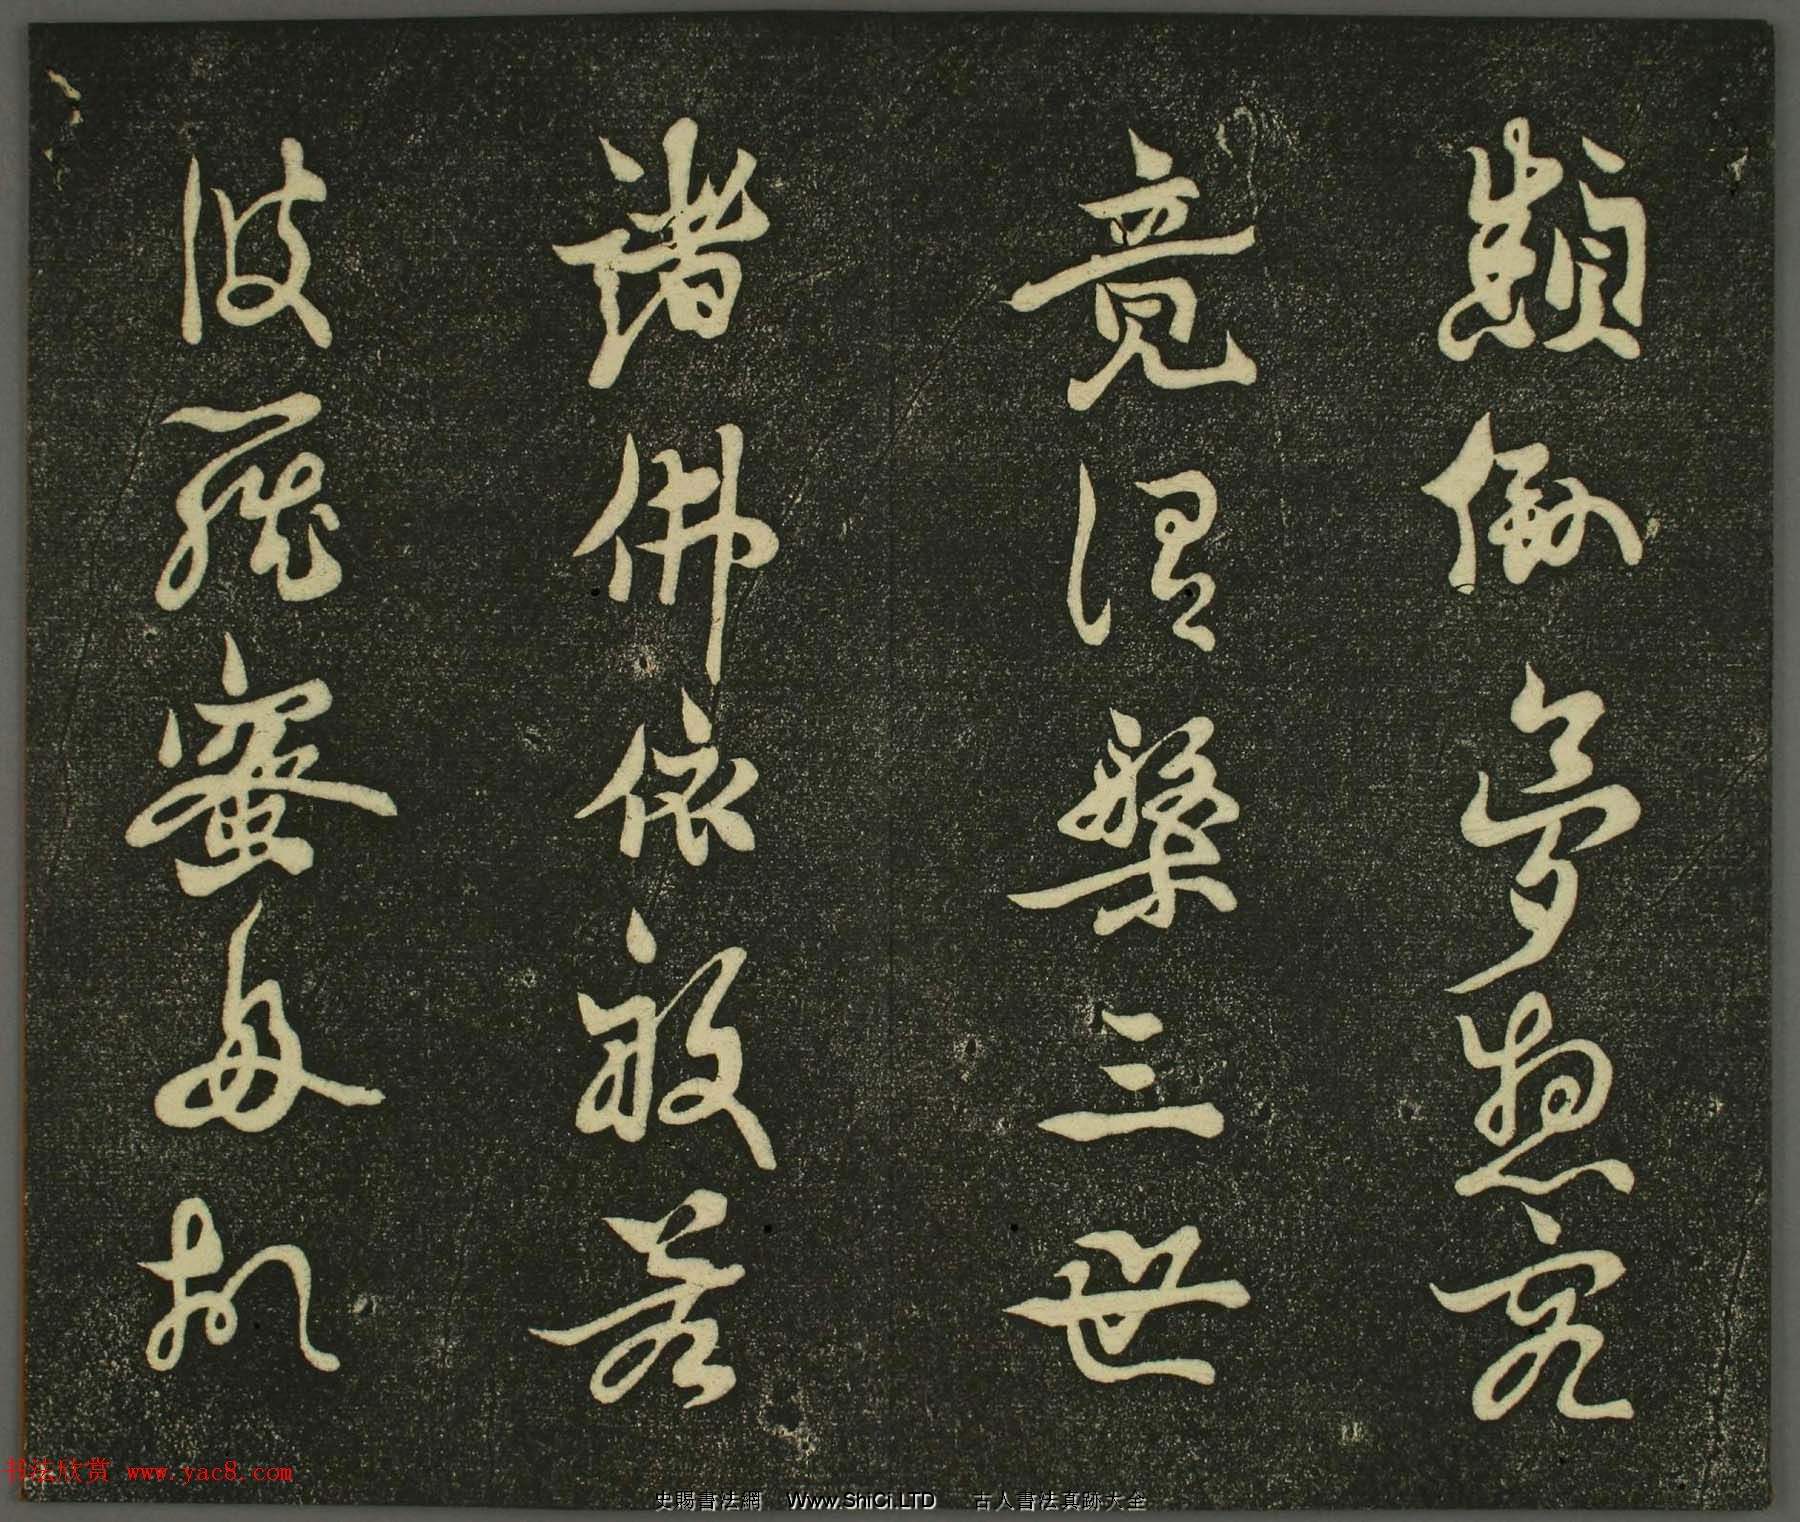 顛倒夢想究
竟涅槃三世
諸佛依般若
波羅蜜多故
书法欣赏 www.yac8.com
史賜書法網 Www.ShiCi.LTD 古人書法真跡大全